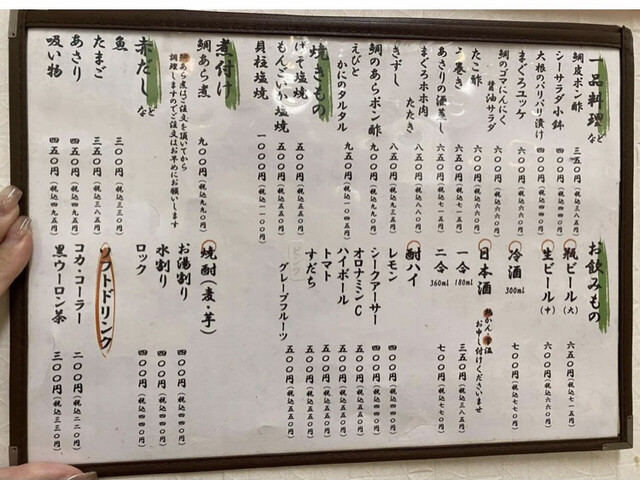 一品料理など
鯛皮ポン酢 三五〇円(税込三八五円)
シーサラダ小鉢 四〇〇円(税込四四〇円)
大根のパリパリ漬け 四〇〇円(税込四四〇円)
まぐろユッケ 六〇〇円(税込六六〇円)
鯛のゴマにんにく
醤油サラダ 六〇〇円(税込六六〇円)
たこ酢 六〇〇円(税込六六〇円)
う巻き 六五〇円(税込七一五円)
あさりの酒蒸し 六五〇円(税込七一五円)
まぐろホホ肉
たたき 八五〇円
きずし 八五〇円
鯛のあらポン酢 九〇〇円(税込九九〇円)
えびと
かにのタルタル 九五〇円(税込一〇四五円)
焼きもの
げそ塩焼 五〇〇円(税込五五〇円)
もんごいか塩焼 五〇〇円(税込五五〇円)
貝柱塩焼 一〇〇〇円(税込一一〇〇円)
煮付け
鯛あら煮 九〇〇円(税込九九〇円)
鯛あら煮はご注文を頂いてから
調理しますのでご注文はお早めにお願いします
赤だしなど
魚 三〇〇円(税込三三〇円)
たまご 三五〇円(税込三八五円)
あさり 四五〇円(税込四九五円)
吸い物 四五〇円(税込四九五円)
お飲みもの
瓶ビール(大) 六五〇円(税込七一五円)
生ビール(中) 六〇〇円(税込六六〇円)
冷酒 300ml 七〇〇円(税込七七〇円)
日本酒
熱かん・ 温
お申し付けくださいませ
一合 180ml 三五〇円(税込三八五円)
二合 360ml 七〇〇円(税込七七〇円)
酎ハイ
レモン 四〇〇円(税込四四〇円)
シークアーサー 四〇〇円(税込四四〇円)
オロナミンC 五〇〇円(税込五五〇円)
ハイボール 五〇〇円(税込五五〇円)
トマト 五〇〇円(税込五五〇円)
すだち 五〇〇円(税込五五〇円)
グレープフルーツ 五〇〇円(税込五五〇円)
焼酎(麦・芋)
お湯割り 四〇〇円(税込四四〇円)
水割り 四〇〇円(税込四四〇円)
ロック 四〇〇円(税込四四〇円)
ソフトドリンク
コカ・コーラー 二〇〇円(税込二二〇円)
黒ウーロン茶 三〇〇円(税込三三〇円)